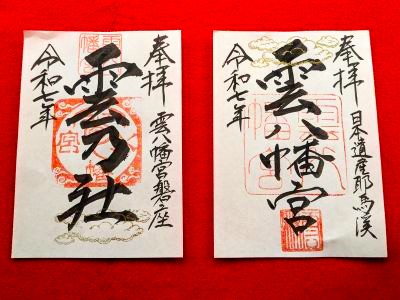 奉拝
雲八幡宮磐座
雲乃社
令和七年
奉拝
日本遺産耶馬渓
雲八幡宮
令和七年